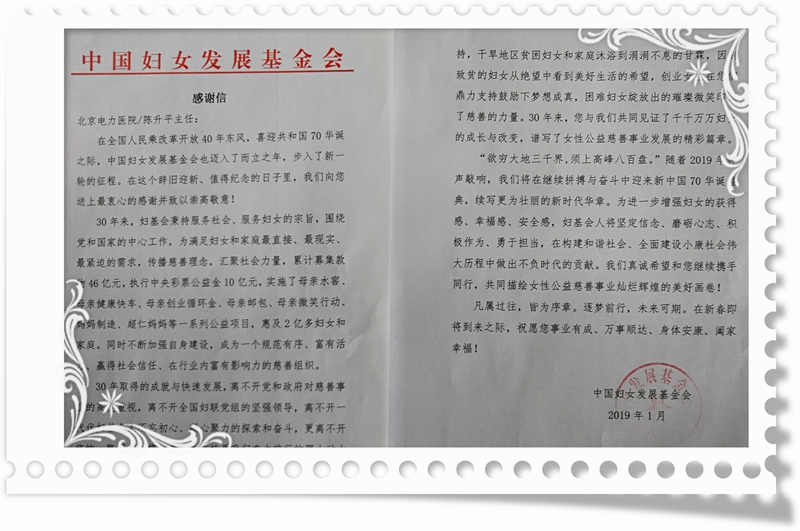 中国妇女发展基金会
感谢信
北京电力医院/陈升平主任：
在全国人民乘改革开放40年东风，喜迎共和国70华诞
之际，中国妇女发展基金会也迈入了而立之年，步入了新一
轮的征程。在这个辞旧迎新、值得纪念的日子里，我们向您
送上最衷心的感谢并致以崇高敬意！
30年来，妇基会秉持服务社会、服务妇女的宗旨，围绕
党和国家的中心工作，为满足妇女和家庭最直接、最现实、
最紧迫的需求，传播慈善理念，汇聚社会力量，累计募集款
约46亿元，执行中央彩票公益金10亿元，实施了母亲水窖、
母亲健康快车、母亲创业循环金、母亲邮包、母亲微笑行动、
妈妈制造、超仁妈妈等一系列公益项目，惠及2亿多妇女和
家庭。同时不断加强自身建设，成为一个规范有序、富有活
、赢得社会信任、在行业内富有影响力的慈善组织。
30年取得的成就与快速发展，离不开党和政府对慈善事
的高 重视，离不开全国妇联党组的坚强领导，离不开一
不忘初心、 心聚力的探索和奋斗，更离不开
持，干旱地区贫困妇女和家庭沐浴到涓涓不息的甘霖，因
致贫的妇女从绝望中看到美好生活的希望，创业女 在您
鼎力支持鼓励下梦想成真，困难妇女绽放出的璀璨微笑印
了慈善的力量。30年来，您与我们共同见证了千千万万妇
的成长与改变，谱写了女性公益慈善事业发展的精彩篇章。
“欲穷大地三千界，须上高峰八百盘。”随着2019年
声敲响，我们将在继续拼搏与奋斗中迎来新中国70华诞
典，续写更为壮丽的新时代华章。为进一步增强妇女的获得
感、幸福感、安全感，妇基会人将坚定信念、磨砺心志、积
极作为、勇于担当，在构建和谐社会、全面建设小康社会伟
大历程中做出不负时代的贡献。我们真诚希望和您继续携手
同行，共同描绘女性公益慈善事业灿烂辉煌的美好画卷！
凡属过往，皆为序章。逐梦前行，未来可期。在新春即
将到来之际，祝愿您事业有成、万事顺达、身体安康、阖家
幸福！
中国妇女发展基金会
2019年1月